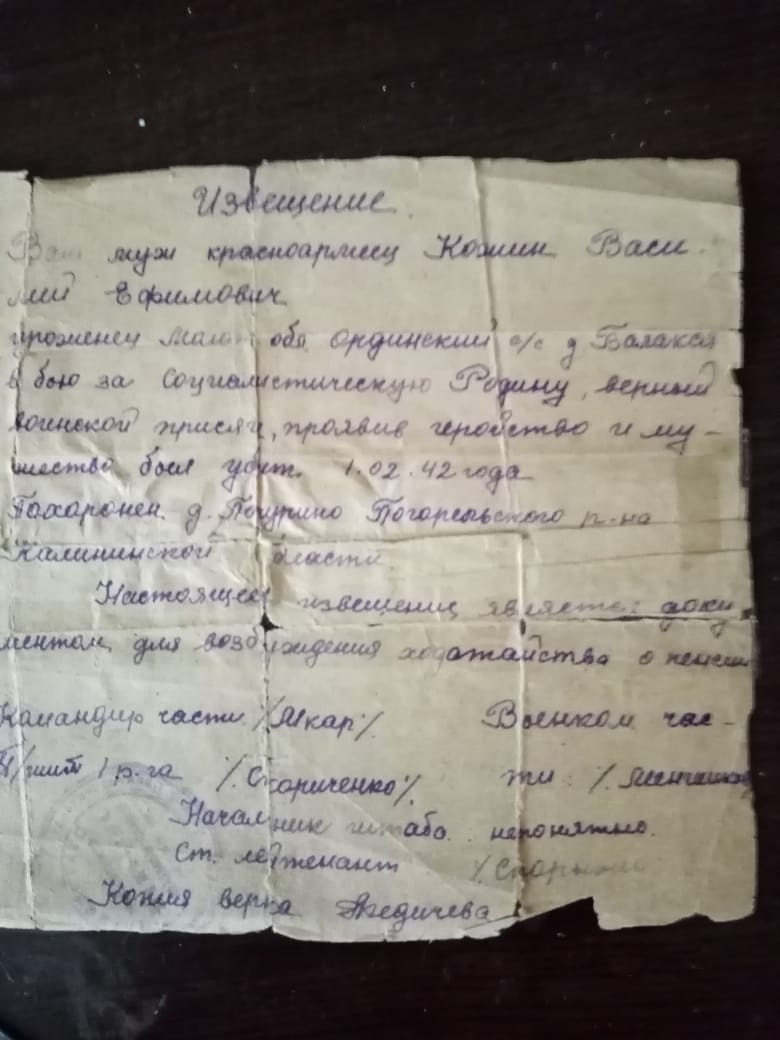 Извещение
Ваш муж красноармеец Кожин Васи
лий Ефимович
уроженец Молот обл. Ординский с/с д
в бою за Социалистическую Родину, верный
воинской присяги, проявив геройство и му-
жество был убит. 1.02.42 года
Похаронен д. Погорельского р-на
Калининской области
Настоящее извещение является доку
ментом для возбуждения ходатайства о пенсии
Командир части Военком час-
1 р-га /Скориченко/. ти /.
Начальник штаба непонятно.
Ст. лейтенант
Копия верна